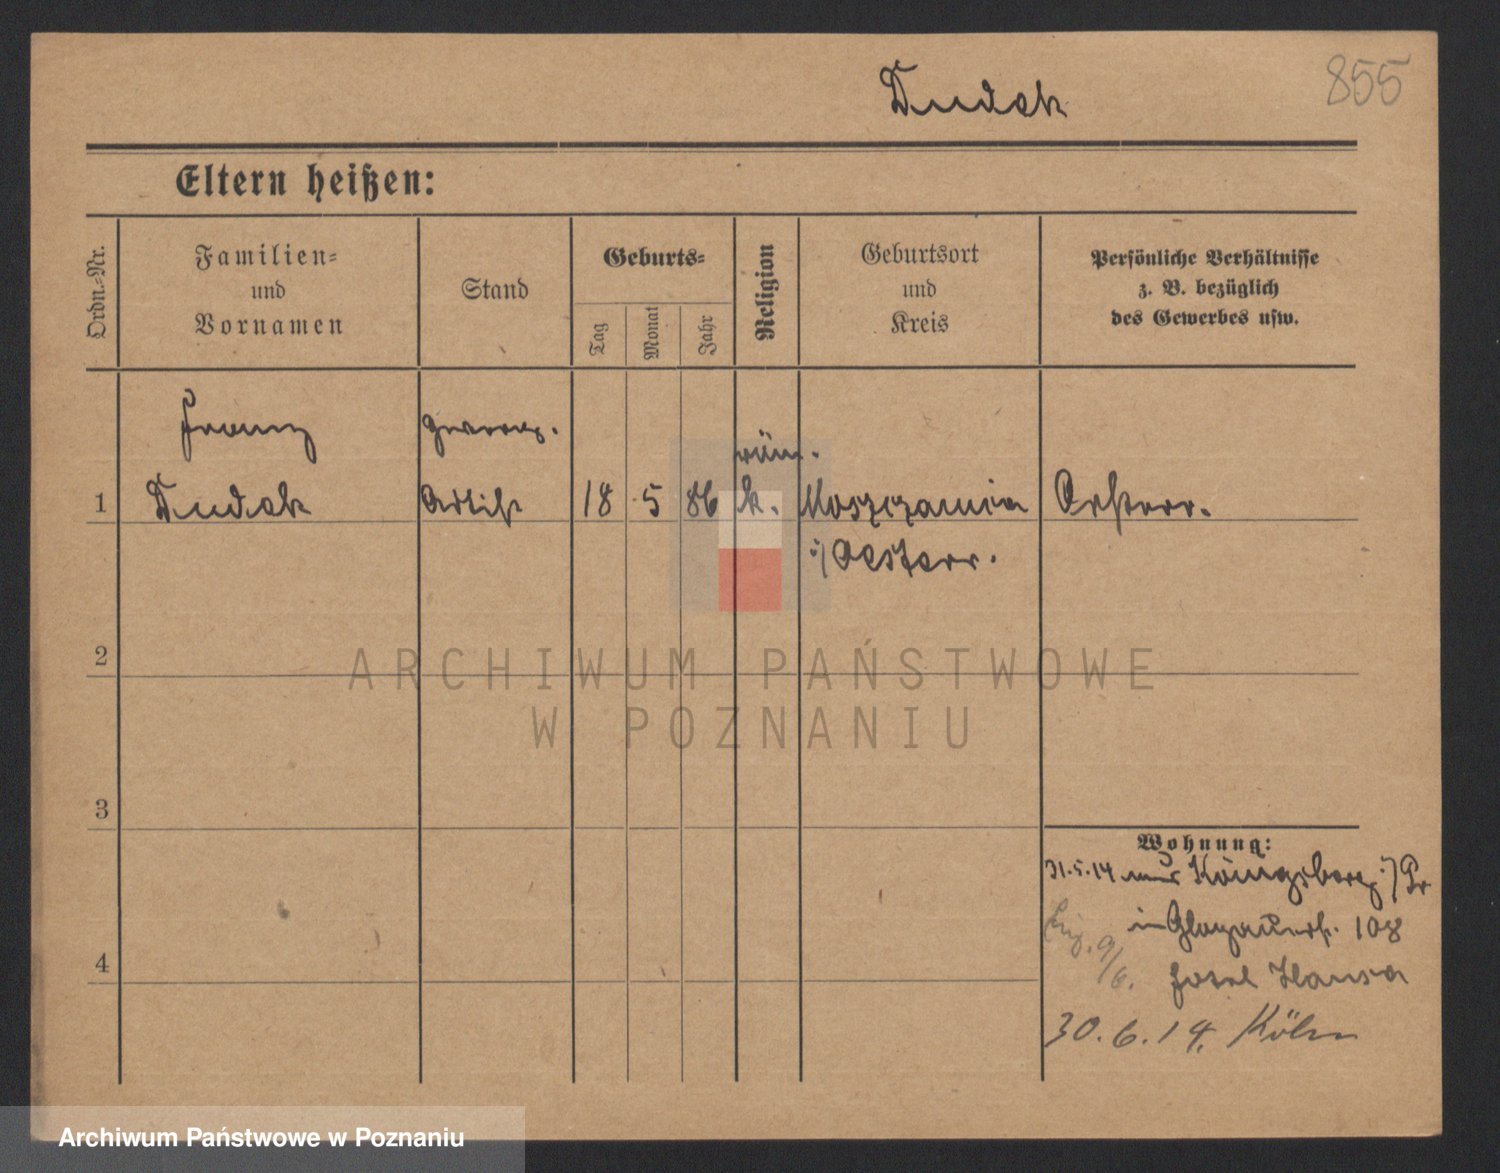 855
Dudek
Eltern heißen:
Ordn.-Nr.
Familien-
und
Vornamen
Stand
Geburts-
Tag
Monat
Jahr
Religion
Geburtsort
und
Kreis
Persönliche Verhältnisse
z. B. bezüglich
des Gewerbes usw.
Franz
röm.
1 Dudek Artist 18 5 86 k. Moszczanica Österr.
i/ Oesterr.
2
ARCHIWUM PAŃSTWOWE
W POZNANIU
3
Wohnung:
31.5.14 aus Königsberg i/Pr
in Glogauerstr. 108
9/6. Hotel Hansa
4
30.6.14. Köln
Archiwum Państwowe w Poznaniu